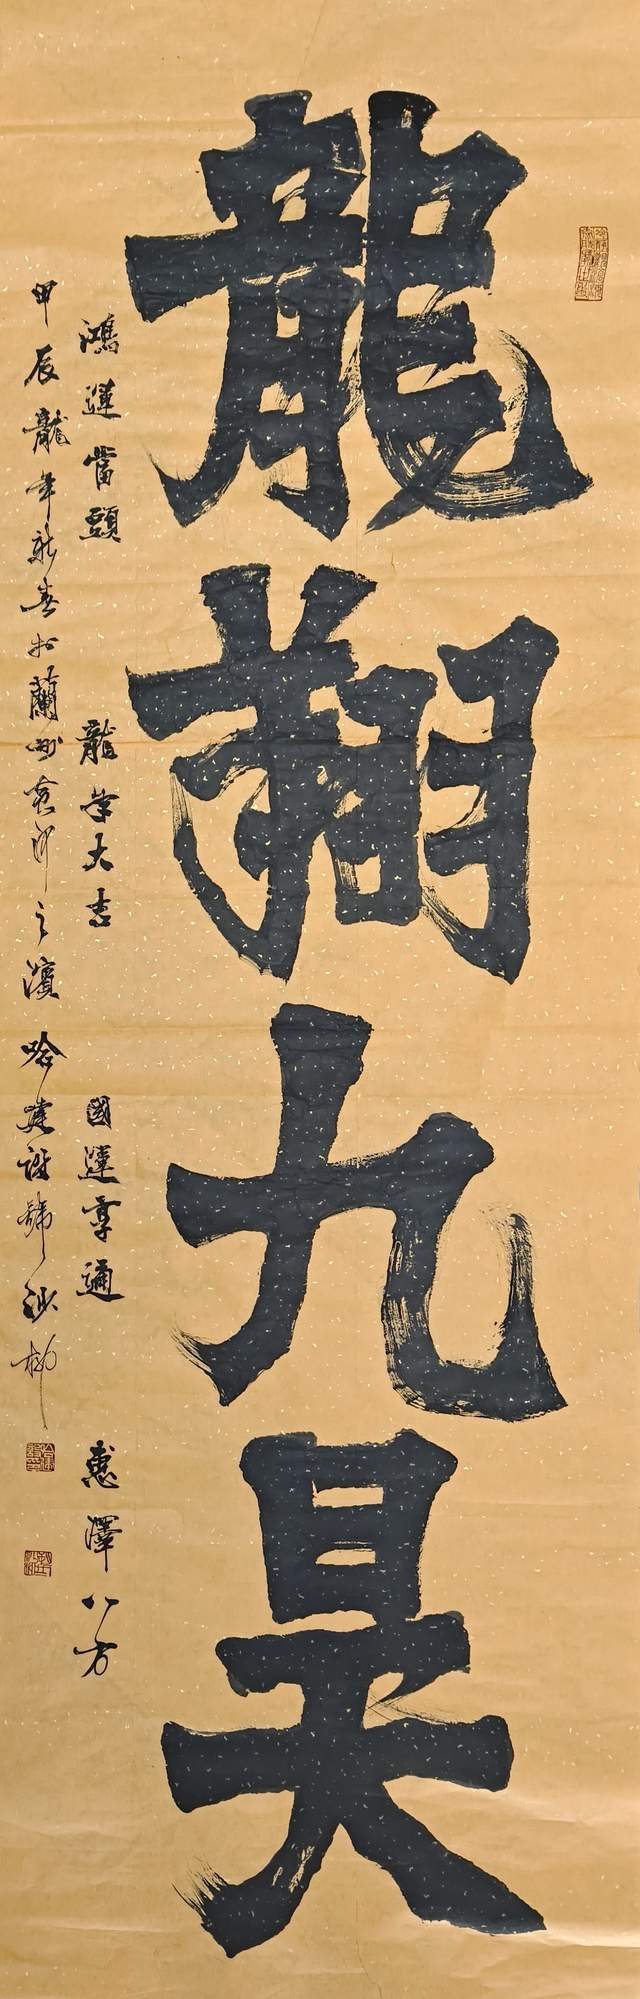 龍翔九昊
鴻運當頭 龍年大吉 國運亨通 惠澤八方
甲辰龍年新春於蘭州黃河之濱 哈建設號沙柳